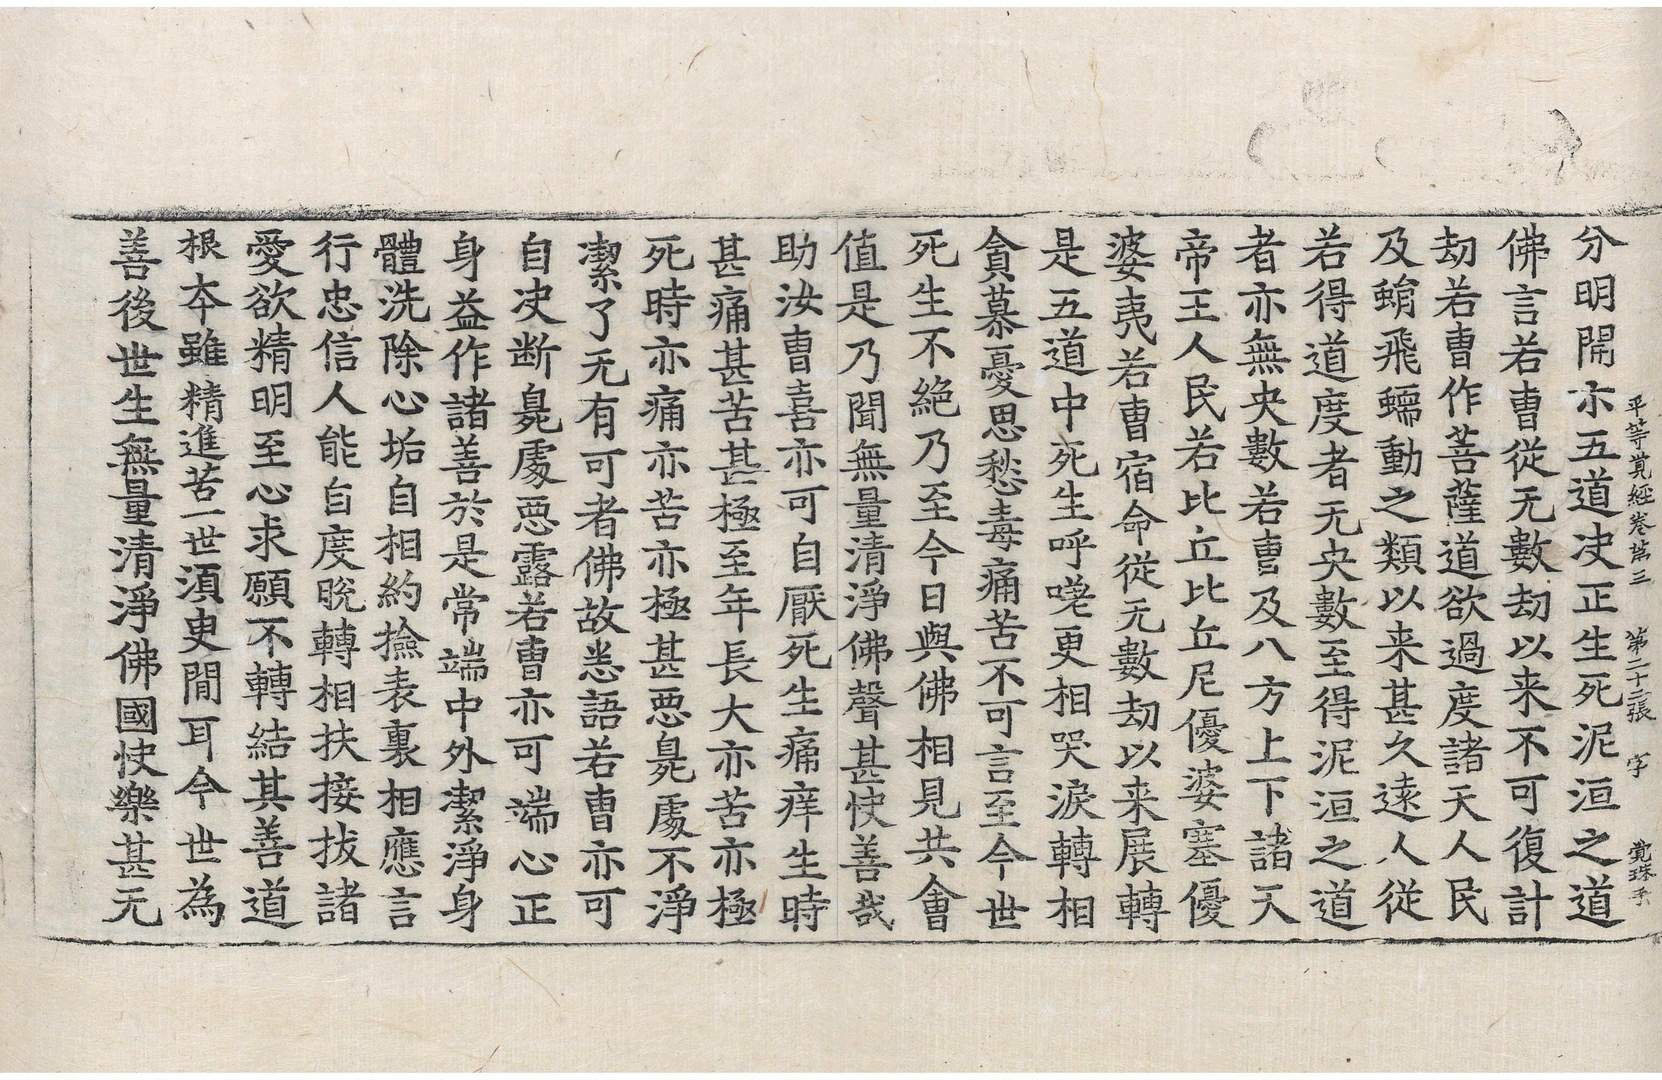 平等覚經卷第三 第二十三張 字 覚珠手
分明開示五道决正生死泥洹之道
佛言若曹從无數劫以来不可復計
劫若曹作菩薩道欲過度諸天人民
及蜎飛蠕動之類以来甚久遠人從
若得道度者无央數至得泥洹之道
者亦無央數若曹及八方上下諸天
帝王人民若比丘比丘尼優婆塞優
婆夷若曹宿命從无數劫以来展轉
是五道中死生呼嗟更相哭淚轉相
貪慕憂思愁毒痛苦不可言至今世
死生不絶乃至今日與佛相見共會
值是乃聞無量清淨佛聲甚快善哉
助汝曹喜亦可自厭死生痛痒生時
甚痛甚苦甚極至年長大亦苦亦極
死時亦痛亦苦亦極甚惡臰處不淨
潔了无有可者佛故悉語若曹亦可
自决断臰處惡露若曹亦可端心正
身益作諸善於是常端中外潔淨身
體洗除心垢自相約撿表裏相應言
行忠信人能自度脫轉相扶接拔諸
愛欲精明至心求願不轉結其善道
根夲雖精進苦一世須臾閒耳今世為
善後世生無量清淨佛國快樂甚无